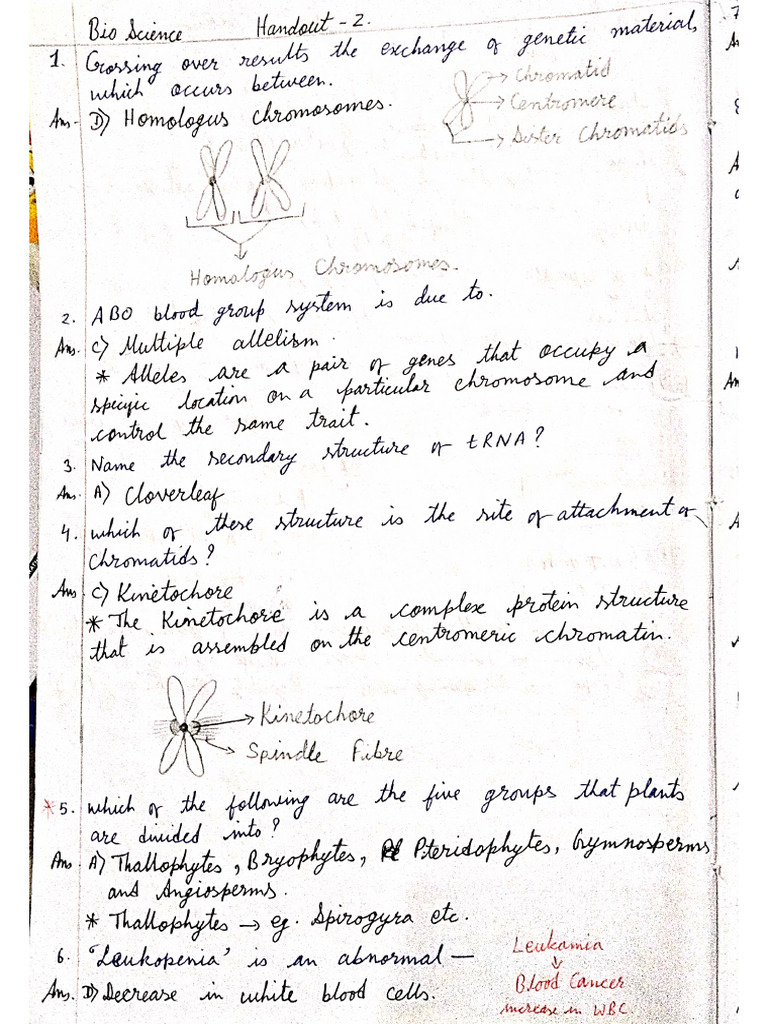 Bio Science Handout - 2.
1. Crossing over results the exchange of genetic material,
which occurs between.
→ Chromatid
→ Centromere
→ Sister Chromatids
Ans. D) Homologus chromosomes.
Homologus Chromosomes.
2. ABO blood group system is due to.
Ans. C) Multiple allelism.
* Alleles are a pair of genes that occupy a
spicific location on a particular chromosome and
control the same trait.
3. Name the secondary structure of tRNA?
Ans. A) Cloverleaf
4. which of these structure is the site of attachment of
chromatids?
Ans C) Kinetochore
* The Kinetochore is a complex protein structure
that is assembled on the centromeric chromatin.
→ Kinetochore
→ Spindle Fibre
* 5. which of the following are the five groups that plants
are divided into?
Ans. A) Thallophytes, Bryophytes, Pteridophytes, Gymnosperms
and Angiosperms.
* Thallophytes → eg. Spirogyra etc.
6. 'Leukopenia' is an abnormal —
Ans. D) Decrease in white blood cells.
Leukamia
↓
Blood Cancer
increase in WBC.